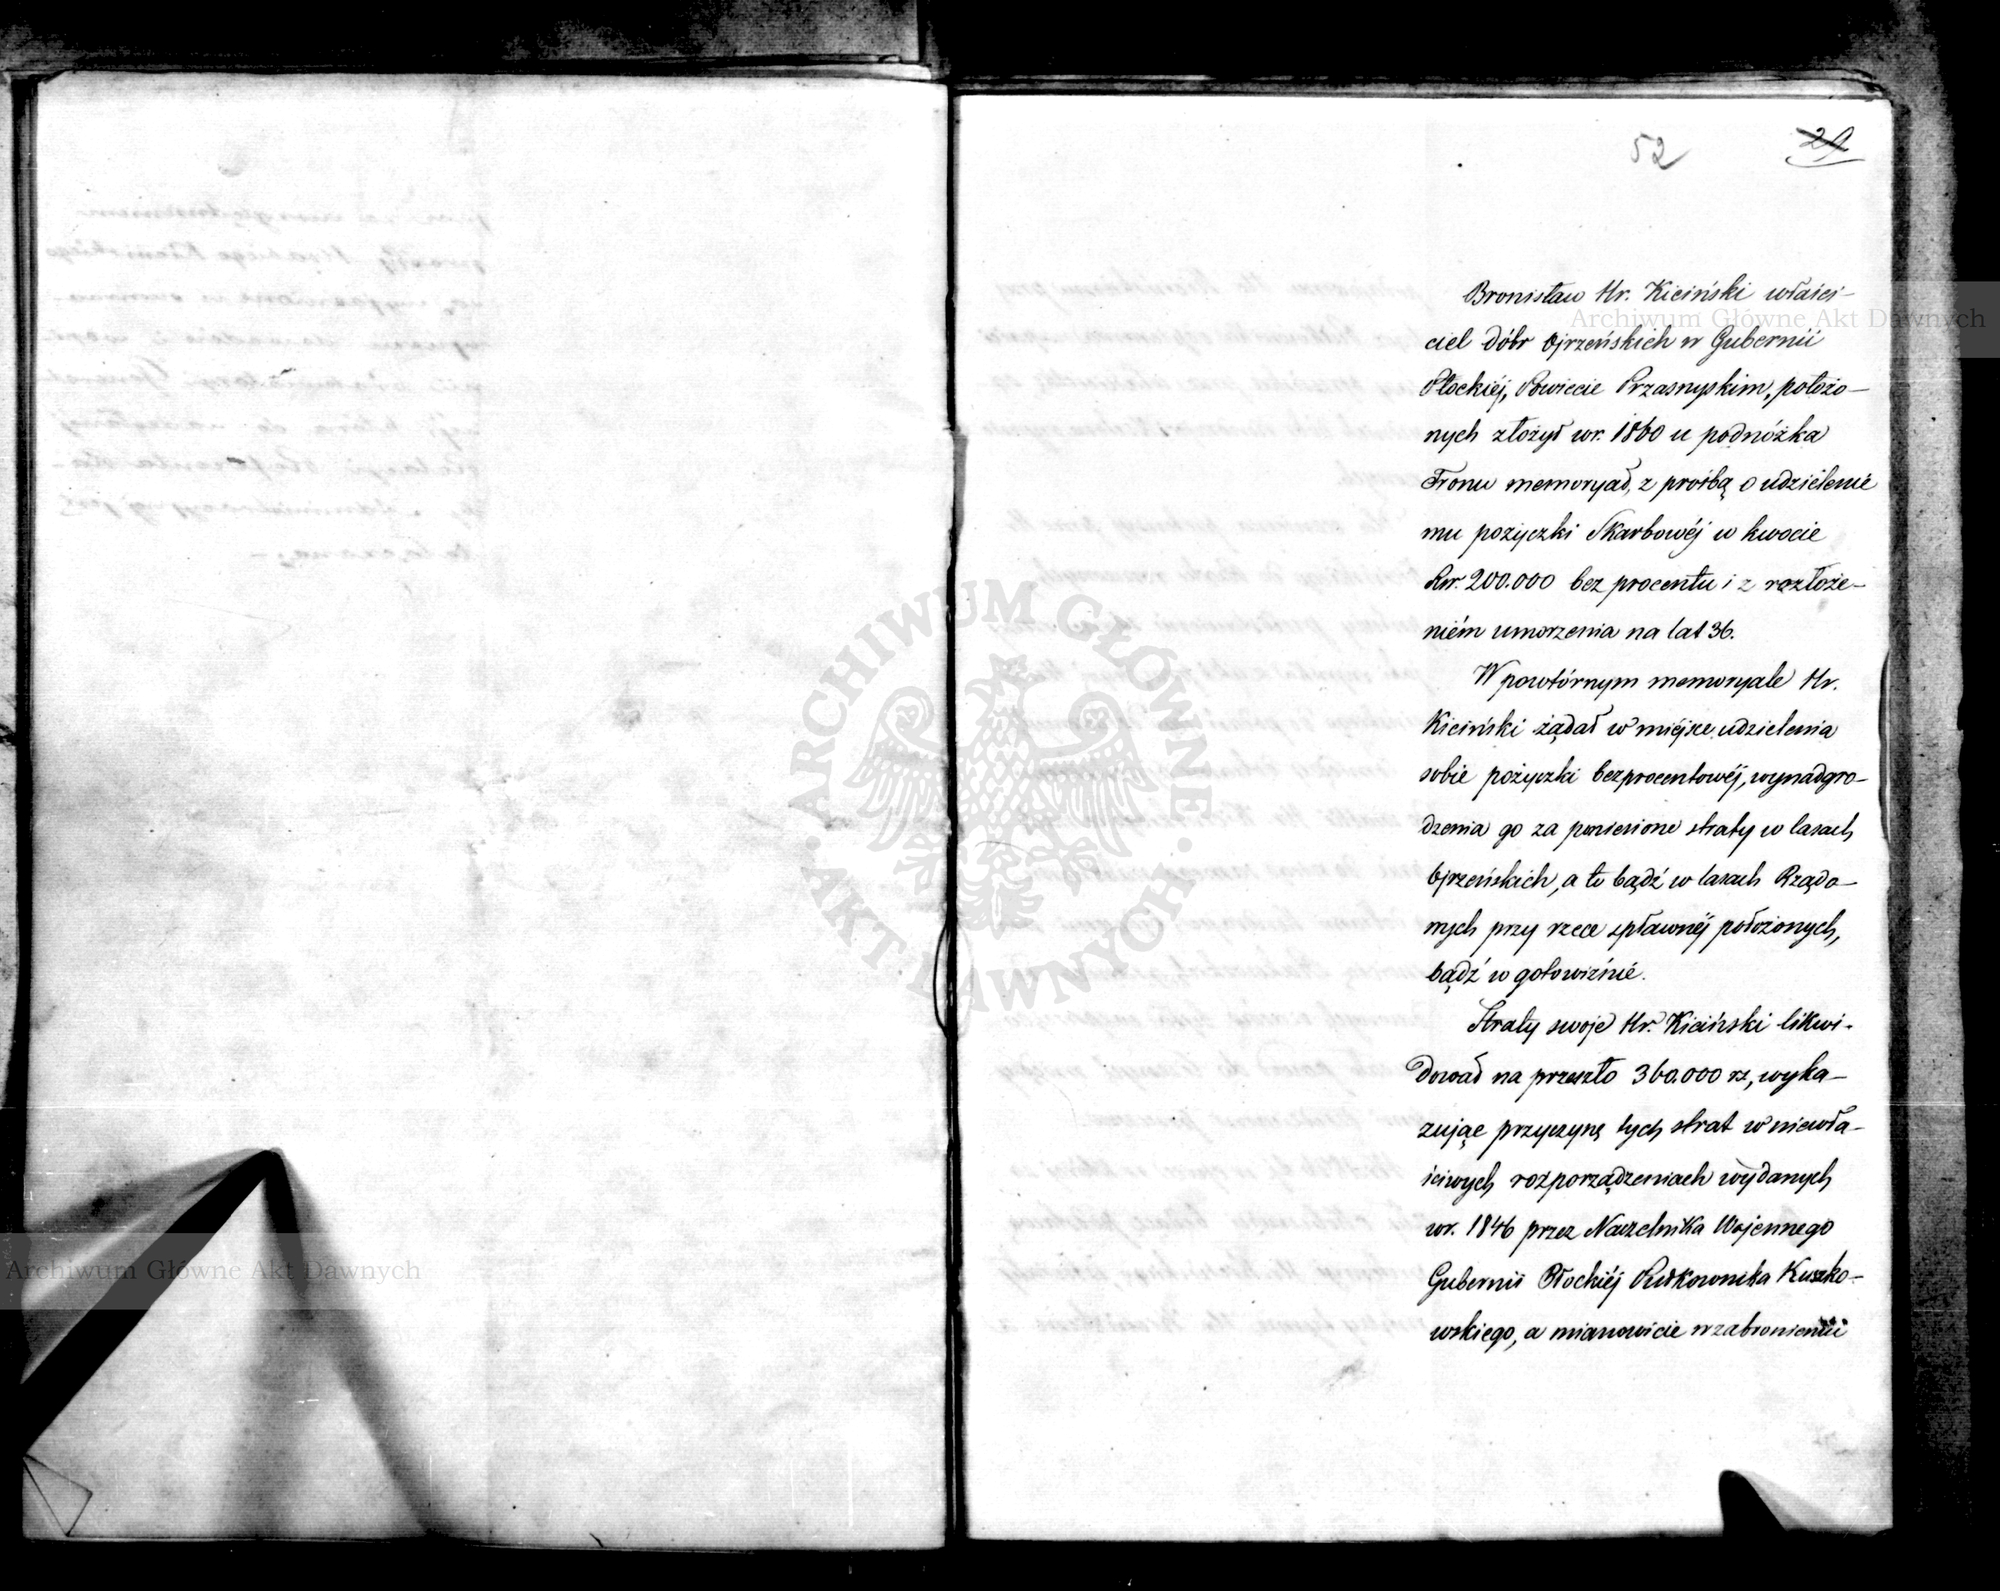 52
29
Bronisław Hr. Kiciński właści-
ciel dóbr Ojrzeńskich w Gubernii
Płockiéj, Powiecie Przasnyskim, położo-
nych złożył w r. 1860 u podnóżka
Tronu memoryał, z prośbą o udzielenie
mu pożyczki Skarbowéj w kwocie
Rsr. 200.000 bez procentu i z rozłoże-
niém umorzenia na lat 36.
W powtórnym memoryale Hr.
Kiciński żądał w miéjsce udzielenia
sobie pożyczki bezprocentowéj, wynadgro-
dzenia go za poniesione straty w lasach
Ojrzeńskich, a to bądź w lasach Rządo-
wych przy rzece spławnéj położonych,
bądź w gotowiźnie.
Straty swoje Hr. Kiciński likwi-
dował na przeszło 360.000 rs, wyka-
zując przyczynę tych strat w niewła-
ściwych rozporządzeniach wydanych
w r. 1846 przez Naczelnika Wojennego
Gubernii Płockiéj Pułkownika Kuszko-
wskiego, a mianowicie w zabronieniu
Archiwum Główne Akt Dawnych
Archiwum Główne Akt Dawnych
· ARCHIWUM GŁÓWNE · AKT DAWNYCH